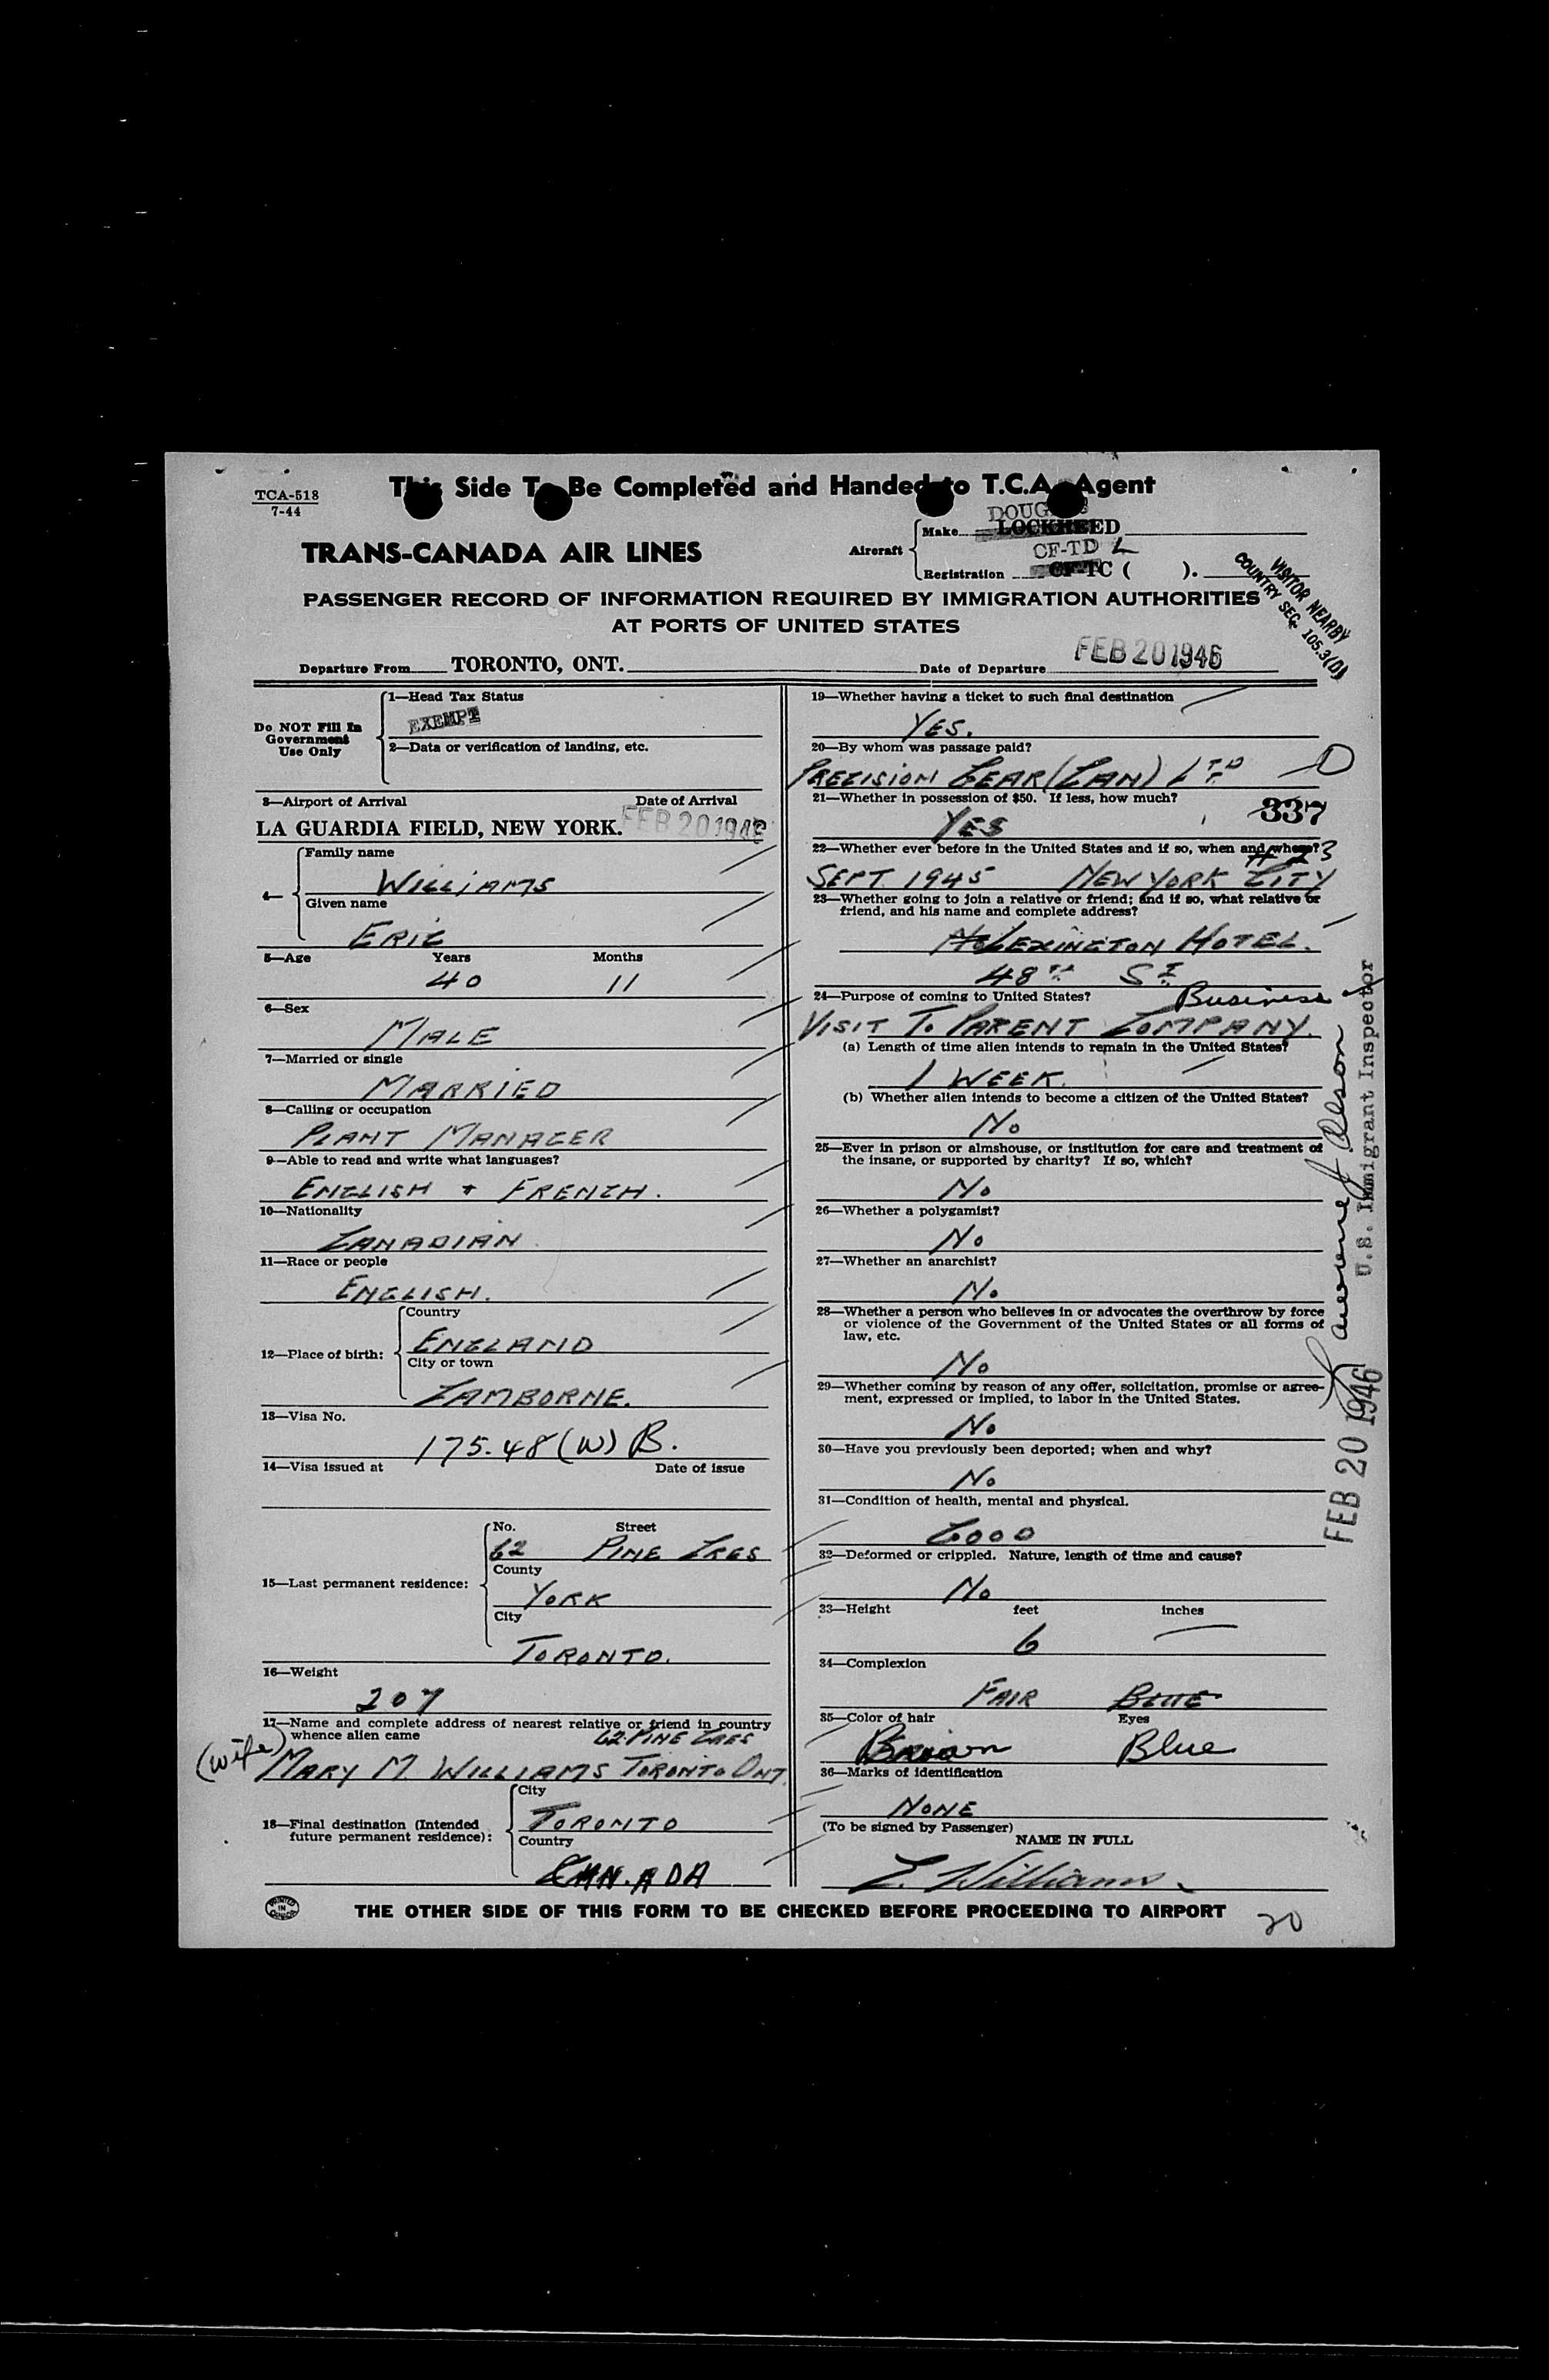 TCA-518
7-44
This Side To Be Completed and Handed to T.C.A. Agent
TRANS-CANADA AIR LINES
Aircraft
Make DOUGLAS LOCKHEED
CF-TD L
Registration CF-TC ( ).
VISITOR NEARBY
COUNTRY SEC. 105.3(D)
PASSENGER RECORD OF INFORMATION REQUIRED BY IMMIGRATION AUTHORITIES
AT PORTS OF UNITED STATES
Departure From TORONTO, ONT. Date of Departure FEB 20 1946
Do NOT Fill In
Government
Use Only
1—Head Tax Status
EXEMPT
2—Data or verification of landing, etc.
3—Airport of Arrival Date of Arrival
LA GUARDIA FIELD, NEW YORK. FEB 20 1946
4—
Family name
WILLIAMS
Given name
ERIC
5—Age Years Months
40 11
6—Sex
MALE
7—Married or single
MARRIED
8—Calling or occupation
PLANT MANAGER
9—Able to read and write what languages?
ENGLISH + FRENCH.
10—Nationality
CANADIAN
11—Race or people
ENGLISH.
12—Place of birth:
Country
ENGLAND
City or town
CAMBORNE.
13—Visa No.
175.48 (W) B.
14—Visa issued at Date of issue
15—Last permanent residence:
No. Street
62 PINE CRES
County
YORK
City
TORONTO.
16—Weight
207
17—Name and complete address of nearest relative or friend in country
whence alien came 62 PINE CRES
(wife) MARY M. WILLIAMS TORONTO ONT.
18—Final destination (Intended
future permanent residence):
City
TORONTO
Country
CAN.ADA
19—Whether having a ticket to such final destination
YES.
20—By whom was passage paid?
PRECISION GEAR (CAN) LTD
21—Whether in possession of $50. If less, how much?
YES
337
22—Whether ever before in the United States and if so, when and where?
#23
SEPT. 1945 NEW YORK CITY
23—Whether going to join a relative or friend; and if so, what relative or
friend, and his name and complete address?
LEXINGTON HOTEL.
48TH ST
24—Purpose of coming to United States? Business
VISIT TO PARENT COMPANY.
(a) Length of time alien intends to remain in the United States?
1 WEEK.
(b) Whether alien intends to become a citizen of the United States?
NO
25—Ever in prison or almshouse, or institution for care and treatment of
the insane, or supported by charity? If so, which?
NO
26—Whether a polygamist?
NO
27—Whether an anarchist?
NO
28—Whether a person who believes in or advocates the overthrow by force
or violence of the Government of the United States or all forms of
law, etc.
NO
29—Whether coming by reason of any offer, solicitation, promise or agree-
ment, expressed or implied, to labor in the United States.
NO
30—Have you previously been deported; when and why?
NO
31—Condition of health, mental and physical.
GOOD
32—Deformed or crippled. Nature, length of time and cause?
NO
33—Height feet inches
6 —
34—Complexion
FAIR BLUE
35—Color of hair Eyes
Brown Blue
36—Marks of identification
NONE
(To be signed by Passenger)
NAME IN FULL
E. Williams.
U.S. Immigrant Inspector
FEB 20 1946
PRINTED
IN
CANADA
THE OTHER SIDE OF THIS FORM TO BE CHECKED BEFORE PROCEEDING TO AIRPORT
20